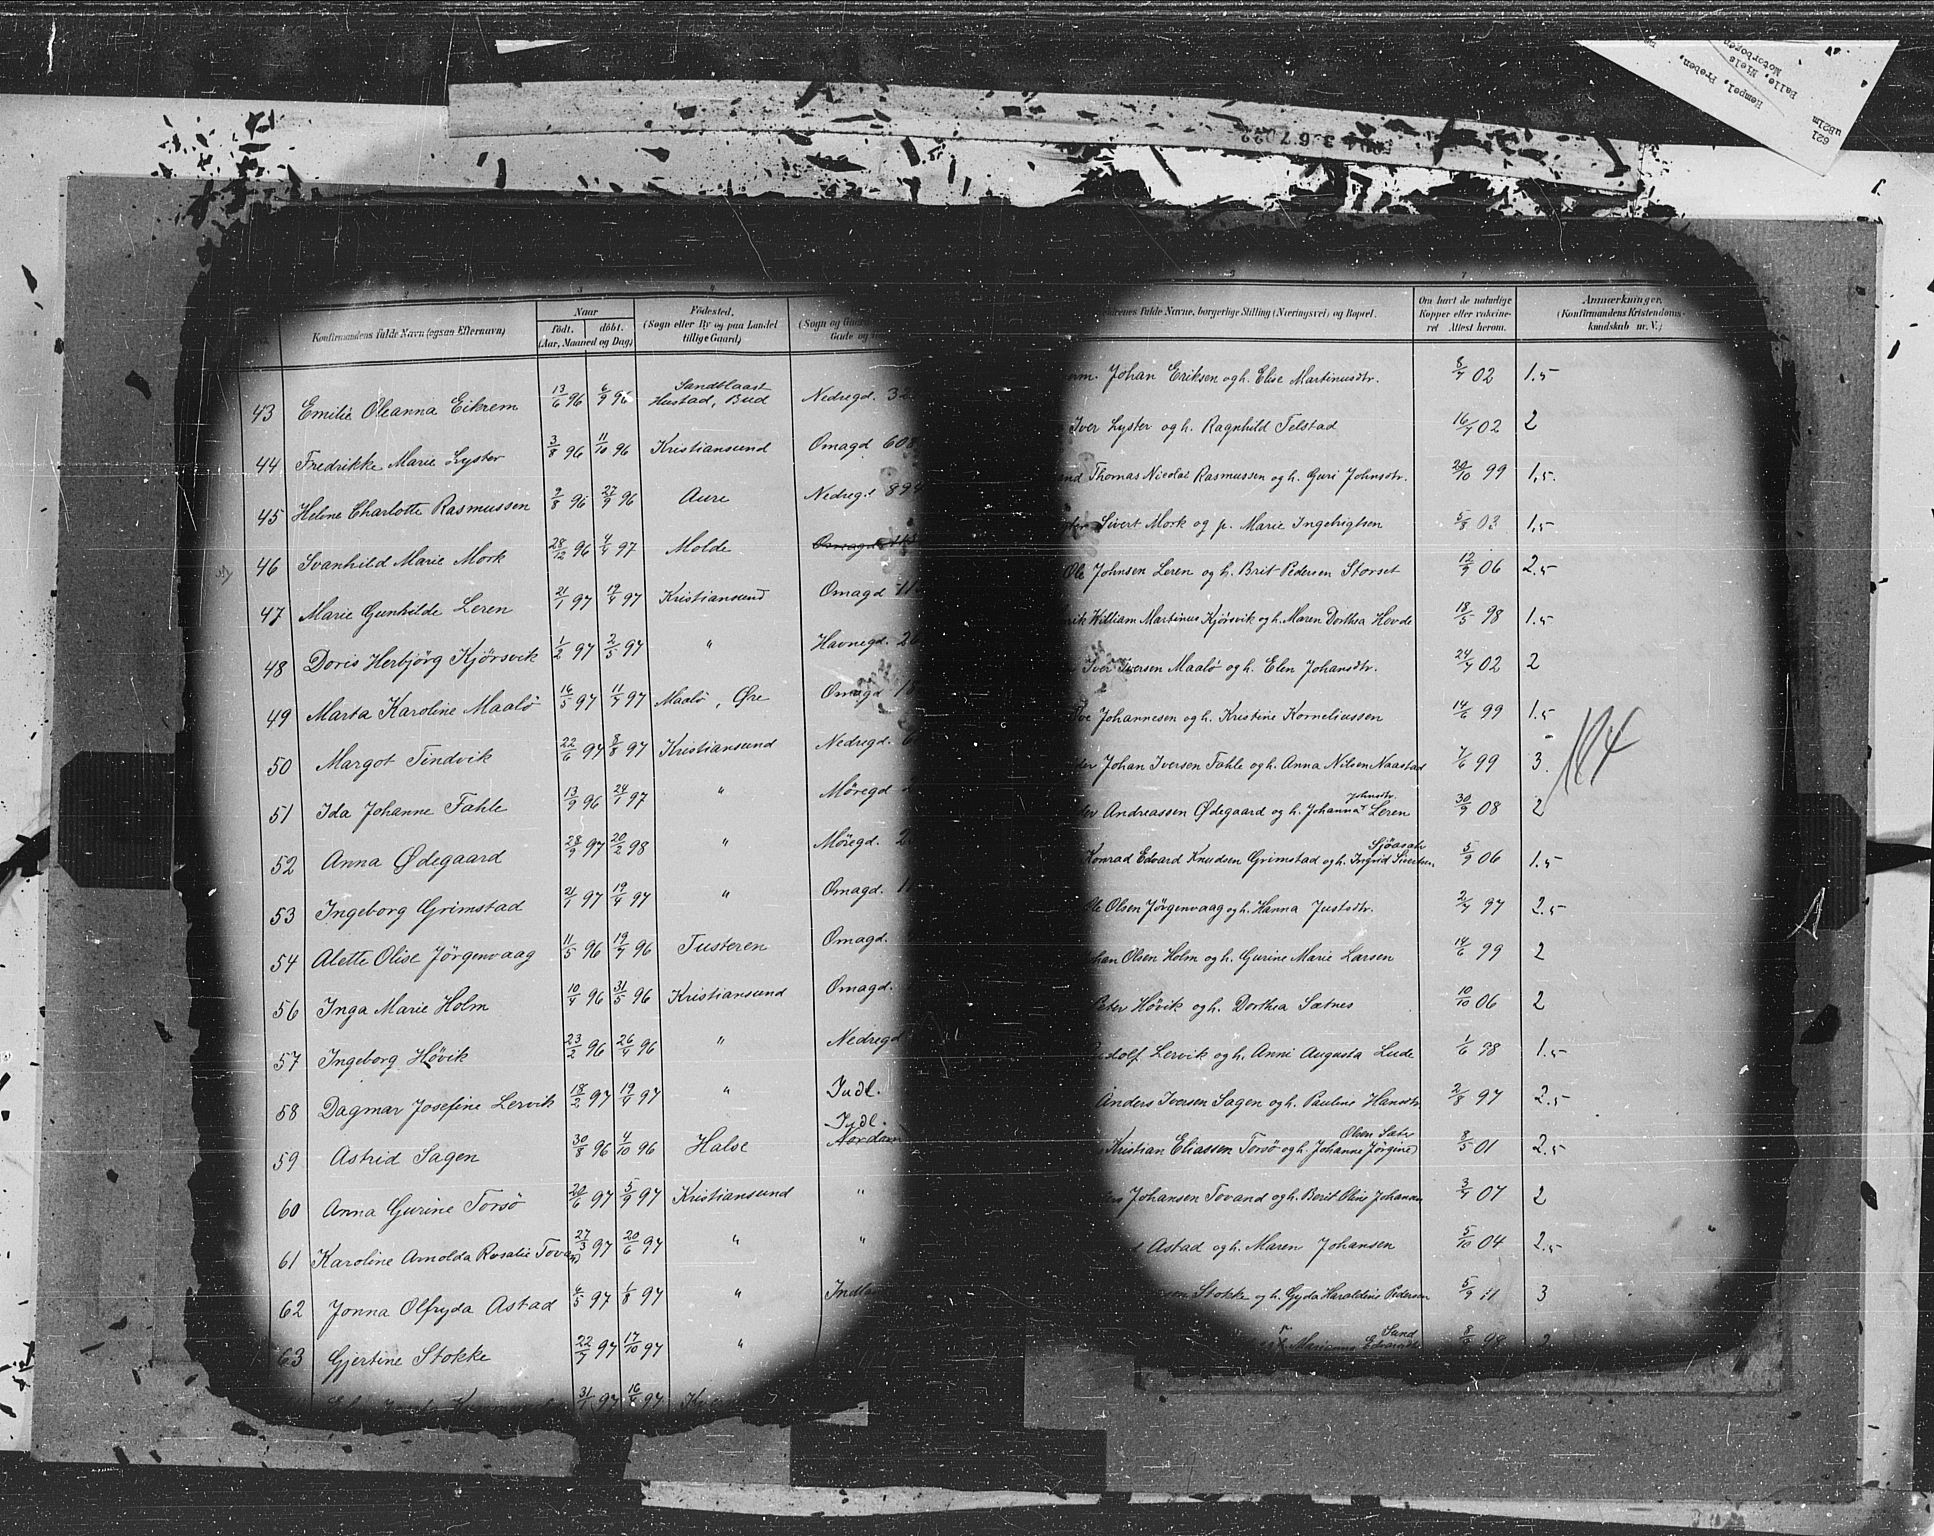 Hempel, Preben.
Balle, Niels
Motorbogen
621
uB21m
2 3 4
Konfirmandens fulde Navn (ogsaa Efternavn)
Naar
födt. döbt.
(Aar, Maaned og Dag)
Födested.
(Sogn eller By og paa Landet
tillige Gaard)
7
Om havt de naturlige
Kopper eller vakcine-
ret Attest herom.
Anmærkninger.
(Konfirmandens Kristendoms-
kundskab m. V.)
43 Emilie Oleanna Eikrem 13/6 96 6/9 96 Sandblaast Hustad, Bud Nedregd. Johan Eriksen og h. Elise Martinusdtr. 8/7 02 1.5
44 Fredrikke Marie Lyster 3/8 96 11/10 96 Kristiansund Omagd 608 Iver Lyster og h. Ragnhild Telstad 16/7 02 2
45 Helene Charlotte Rasmussen 9/8 96 27/9 96 Aure Nedregd 894 Thomas Nicolai Rasmussen og h. Guri Johnsdtr. 20/10 99 1.5.
46 Svanhild Marie Mork 28/12 96 4/4 97 Molde Omagd Sivert Mork og p. Marie Ingebrigtsen 5/8 03 1.5
47 Marie Gunhilde Leren 21/1 97 19/4 97 Kristiansund Omagd Ole Johnsen Leren og h. Brit Pedersen Storset 12/9 06 2.5
48 Doris Herbjörg Kjörsvik 1/2 97 2/5 97 " Havnegd. William Martinus Kjörsvik og h. Maren Dorthea Hovde 18/5 98 1.5
49 Marta Karoline Maalö 16/5 97 11/7 97 Maalö, Øre Omagd Iver Iversen Maalö og h. Elen Johansdtr. 24/7 02 2
50 Margot Tindvik 22/6 97 8/8 97 Kristiansund Nedregd. Johannesen og h. Kristine Korneliussen 14/6 99 1.5
51 Ida Johanne Fahle 13/9 96 24/1 97 " Möregd Johan Iversen Fahle og h. Anna Nilsen Naastad 7/6 99 3.
184
52 Anna Ødegaard 28/9 97 20/2 98 " Möregd. Andreassen Ødegaard og h. Johanna Johnsdtr. Leren 30/9 08 2
53 Ingeborg Grimstad 21/1 97 19/4 97 " Omagd. Konrad Edvard Knudsen Grimstad og h. Ingrid Sivertsen 5/9 06 1.5
54 Alette Olise Jörgenvaag 11/5 96 19/7 96 Tusteren Omagd. Ole Olsen Jörgenvaag og h. Hanna Justsdtr. 2/7 97 2.5
56 Inga Marie Holm 10/4 96 31/5 96 Kristiansund Omagd. Johan Olsen Holm og h. Gurine Marie Larsen 14/6 99 2
57 Ingeborg Hövik 23/2 96 26/4 96 " Nedregd Peter Hövik og h. Dorthea Sætnes 10/10 06 2
58 Dagmar Josefine Lervik 18/2 97 19/4 97 " Indl. Rudolf Lervik og h. Anni Augusta Lude 1/6 98 1.5
59 Astrid Sagen 30/8 96 4/10 96 Halse Indl. Anders Iversen Sagen og h. Pauline Hansdtr. 2/8 97 2.5
60 Anna Gurine Torsö 20/6 97 5/9 97 Kristiansund " Kristian Eliassen Torsö og h. Johanne Jörgine Olsen Sæter 8/5 01 2.5
61 Karoline Arnolda Rosalie Tovand 27/3 97 20/6 97 " " Johansen Tovand og h. Berit Oline Johansen 3/7 07 2
62 Jonna Olfryda Astad 4/5 97 1/8 97 " Astad og h. Maren Johansen 5/10 04 2.5
63 Gjertine Stokke 22/7 97 17/10 97 " Stokke og h. Gyda Haraldine Pedersen 5/9 11 3
31/1 97 16/4 97 Marianne Sand 8/9 98 2